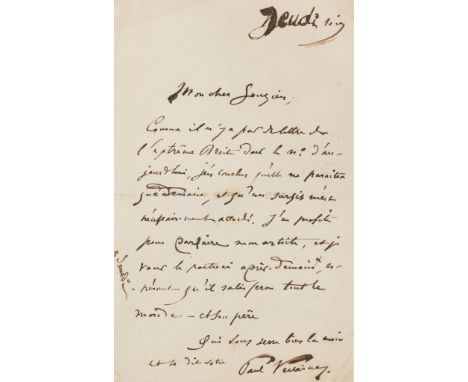 Jeudi soir
Mon cher Gouzien,
Comme il n'y a pas de lettre de
l'extrême Droite dans le n° d'au-
jourd'hui, j'en conclus qu'elle ne paraîtra
que demain, et qu'un sursis m'est
nécessairement accordé. J'en profite
pour parfaire mon article, et je
vous le porterai après-demain +, es-
+ Samedi
pérant qu'il satisfera tout le
monde — et son père
Qui vous serre bien la main
et se dit votre
Paul Verlaine